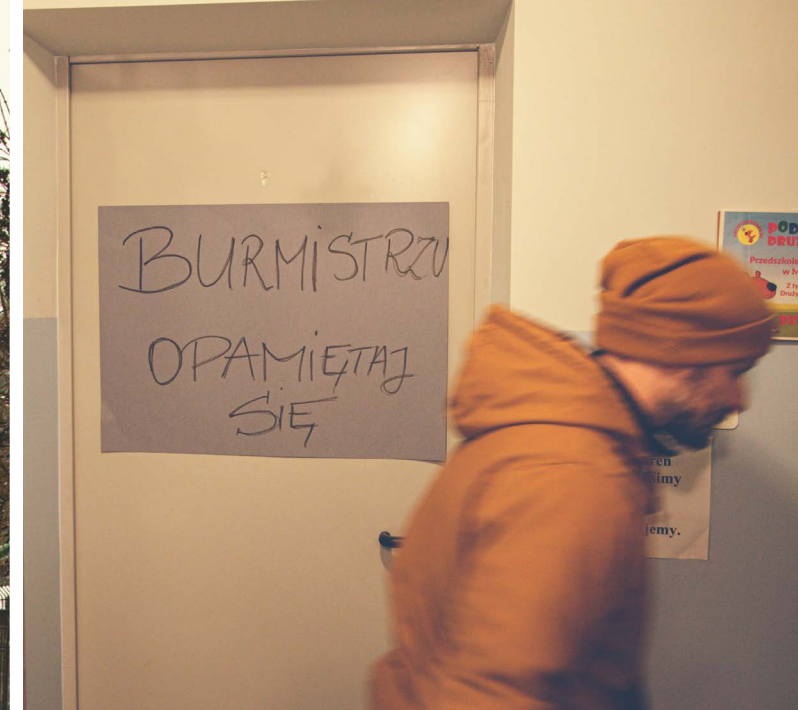 BURMiSTRZU
OPAMiĘTAJ
SiĘ
POD
DRU
Przedszkole
w M
Z ty
Druży
simy
jemy.